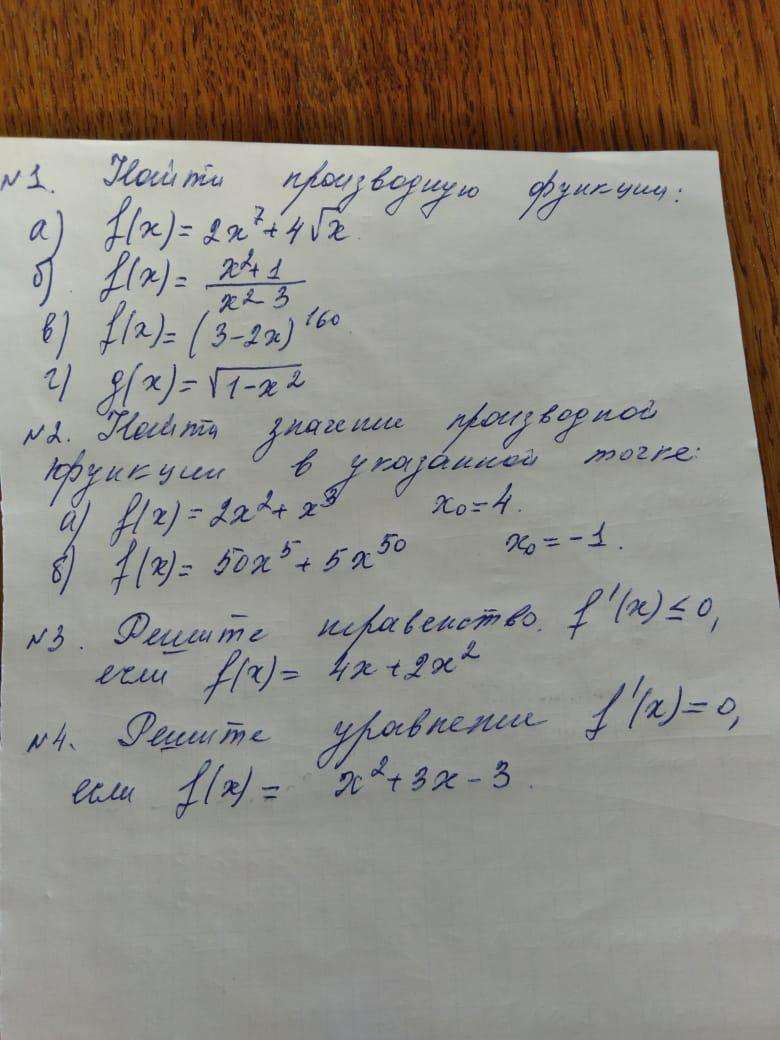 №1. Найти производную функции:
а) f(x) = 2x⁷ + 4√x.
б) f(x) = (x² + 1)/(x² - 3)
в) f(x) = (3 - 2x)¹⁶⁰
г) g(x) = √(1 - x²)
№2. Найти значение производной
функции в указанной точке:
а) f(x) = 2x² + x³ x₀ = 4.
б) f(x) = 50x⁵ + 5x⁵⁰ x₀ = -1.
№3. Решите неравенство f'(x) ≤ 0,
если f(x) = 4x + 2x²
№4. Решите уравнение f'(x) = 0,
если f(x) = x² + 3x - 3.